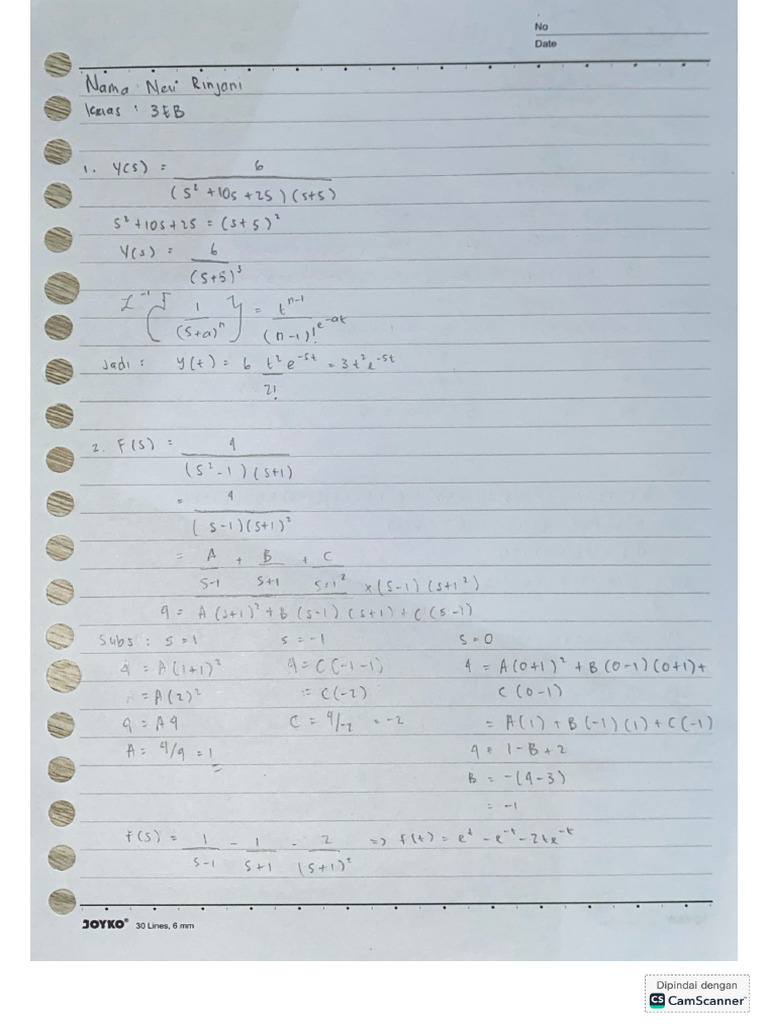 No
Date
Nama : Nevi Rinjani
Kelas : 3EB
1. Y(s) = 6 / (s² + 10s + 25) (s+5)
s² + 10s + 25 = (s + 5)²
Y(s) = 6 / (s+5)³
ℒ⁻¹ { 1 / (s+a)ⁿ } = tⁿ⁻¹ / (n-1)! e⁻ᵃᵗ
Jadi : y(t) = 6 t² e⁻⁵ᵗ / 2! = 3t² e⁻⁵ᵗ
2. F(s) = 4 / (s² - 1) (s+1)
= 4 / (s-1)(s+1)²
= A / s-1 + B / s+1 + C / s+1² × (s-1) (s+1²)
4 = A (s+1)² + B (s-1) (s+1) + C (s-1)
Subs : s = 1 s = -1 s = 0
4 = A(1+1)² 4 = C(-1-1) 4 = A(0+1)² + B(0-1)(0+1) +
= A(2)² = C(-2) C(0-1)
4 = A4 C = 4/-2 = -2 = A(1) + B(-1)(1) + C(-1)
A = 4/4 = 1 4 = 1 - B + 2
B = -(4-3)
= -1
F(s) = 1 / s-1 - 1 / s+1 - 2 / (s+1)² => f(t) = eᵗ - e⁻ᵗ - 2te⁻ᵗ
JOYKO® 30 Lines, 6 mm
Dipindai dengan
CS CamScanner™